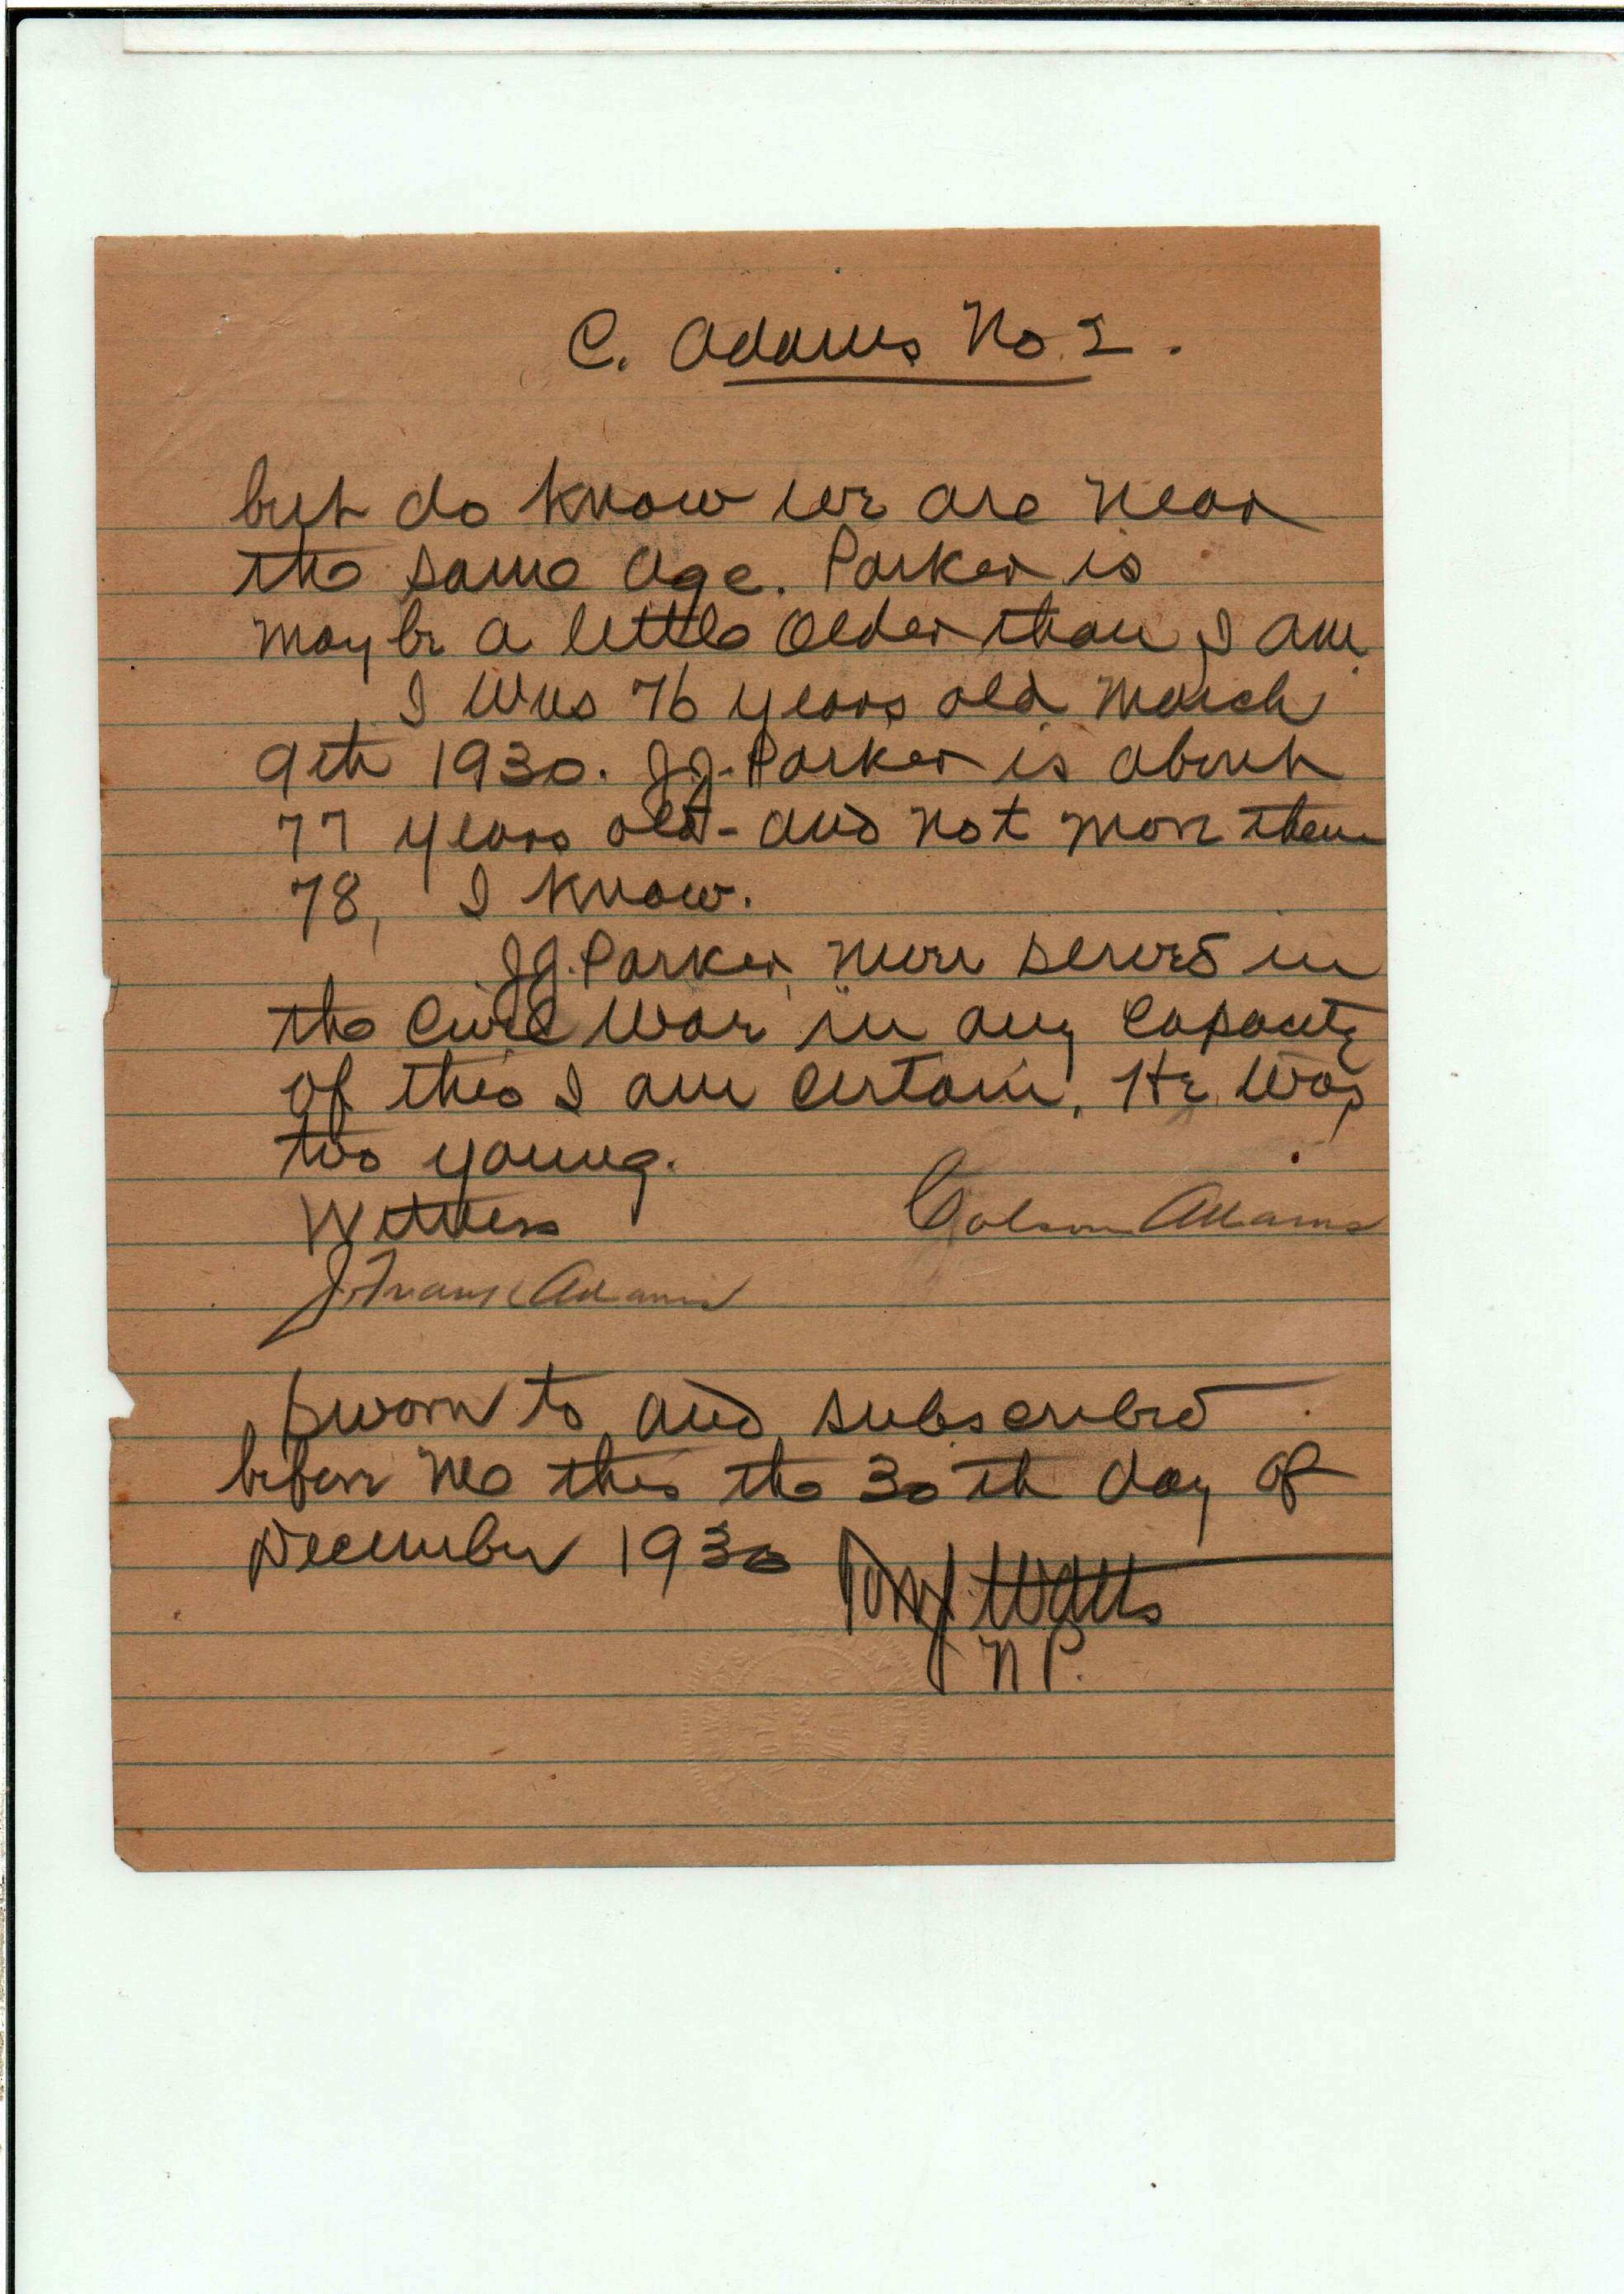 C. Adams No 2.
but do know we are near
the same age. Parker is
maybe a little older than I am
I was 76 years old March
9th 1930. J.J. Parker is about
77 years old - and not more than
78, I know.
J.J. Parker never served in
the Civil War in any capacity
of this I am certain. He was
too young.
Witness
Colson Adams
J. Frank Adams
Sworn to and subscribed
before me this the 30th day of
December 1930
Watts
N P.